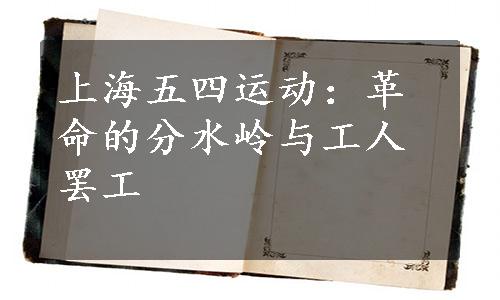 上海五四运动：革
命的分水岭与工人
罢工